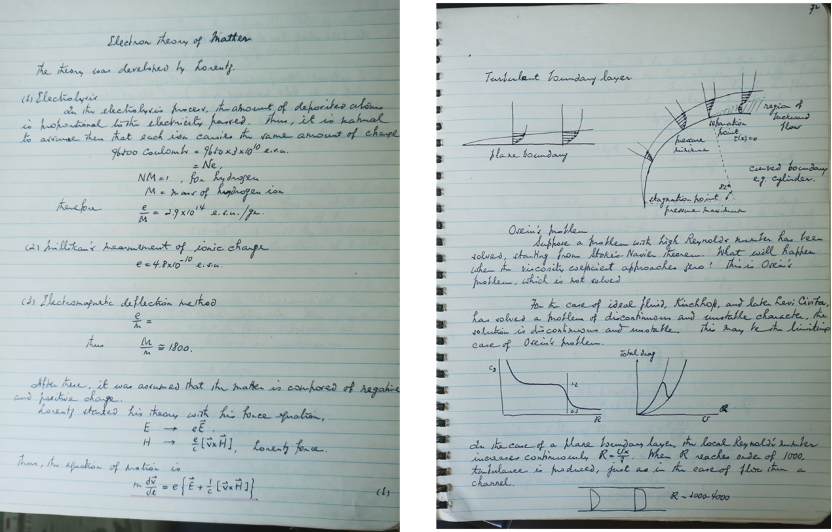 Electron theory of Matter
The theory was developed by Lorentz.
(1) Electrolysis
In the electrolysis process, the amount of deposited atoms
is proportional to the electricity passed. Thus, it is natural
to assume then that each ion carries the same amount of charge
96500 Coulombs = 9650 x 3 x 10^10 e.s.u.
= Ne,
NM = 1, for hydrogen
M = mass of hydrogen ion
therefore e/M = 2.9 x 10^14 e.s.u./gr.
(2) Millikan's measurement of ionic charge
e = 4.8 x 10^-10 e.s.u.
(3) Electromagnetic deflection method
e/m =
thus M/m ≅ 1800.
After these, it was assumed that the matter is composed of negative
and positive charge.
Lorentz started his theory with his force equation,
E → eE⃗.
H → e/c [v⃗ x H⃗], Lorentz force.
Thus, the equation of motion is
m dv⃗/dt = e { E⃗ + 1/c [v⃗ x H⃗] }
(1)
72
Turbulent boundary layer
region of
backward
flow
separation
point
τ(x)=0
pressure
minimum
plane boundary
curved boundary
e.g. cylinder.
82°
stagnation point
pressure maximum
Oseen's problem
Suppose a problem with high Reynolds number has been
solved, starting from Stokes Navier theorem. What will happen
when the viscosity coefficient approaches zero? This is Oseen's
problem, which is not solved
For the case of ideal fluid, Kirchhop, and late Levi Civita,
has solved a problem of discontinuous and unstable character, the
solution is discontinuous and unstable. This may be the limiting
case of Oseen's problem.
Total drag
R
U
In the case of a plane boundary layer, the local Reynold's number
increases continuously R = Ux/ν. When R reaches order of 1000,
turbulence is produced, just as in the case of flow thru a
channel.
R ~ 1000-4000